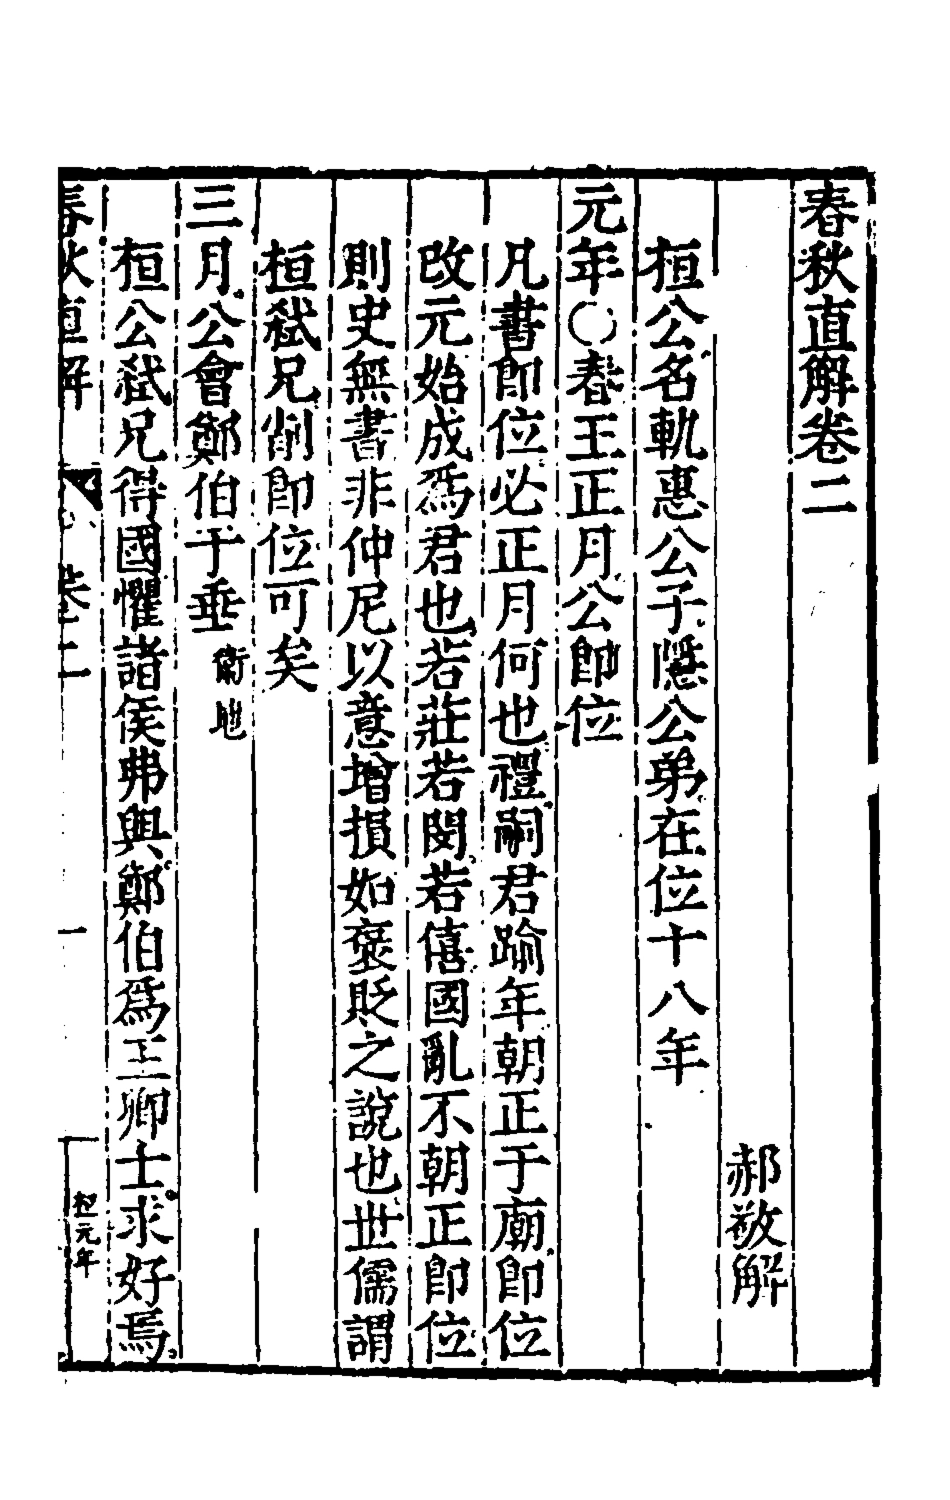 春秋直解卷二
郝敬解
桓公名軌惠公子隱公弟在位十八年
元年〇春王正月公卽位
凡書卽位必正月何也禮嗣君踰年朝正于廟卽位
改元始成爲君也若莊若閔若僖國亂不朝正卽位
則史無書非仲尼以意增損如褒貶之說也世儒謂
桓弑兄削卽位可矣
三月公會鄭伯于垂衛地
桓公弑兄得國懼諸侯弗與鄭伯爲王卿士求好焉
春秋直解 卷二 一 桓元年